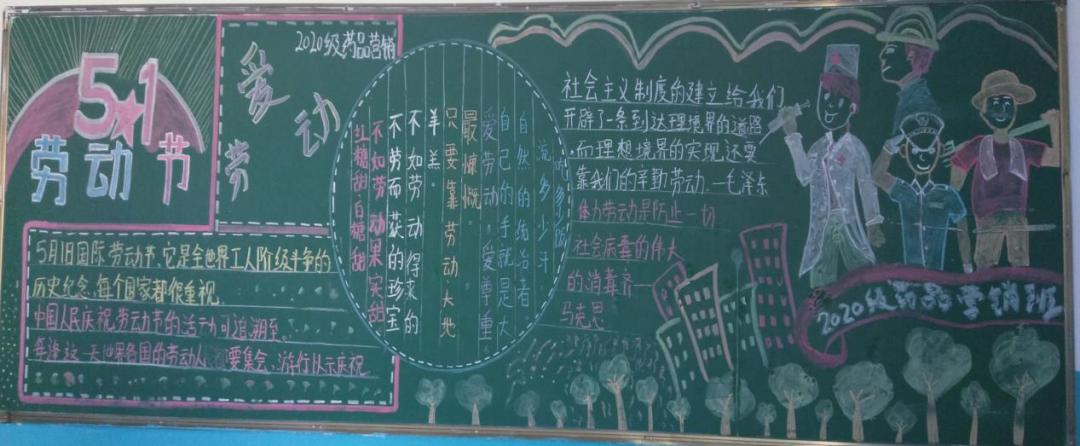 5★1
劳动节
2020级药品营销
爱
劳动
5月1日国际劳动节,它是全世界工人阶级斗争的
历史纪念,每个国家都很重视.
中国人民庆祝劳动节的活动可追溯至.
每逢这一天世界各国的劳动人 要集会、游行以示庆祝
红糖甜白糖甜
不如劳动果实甜
不劳而获的珍宝
不如劳动得来的
羊羔。
只要靠劳动大地
最慷慨。
爱劳动,爱尊重
自己的手就是大
自然的统治者
流多少汗
吃多少饭
社会主义制度的建立给我们
开辟了一条到达理境界的道路
而理想境界的实现还要
靠我们的辛勤劳动.—毛泽东
体力劳动是防止一切
社会病毒的伟大
的消毒齐—
马克思
2020级药品营销班